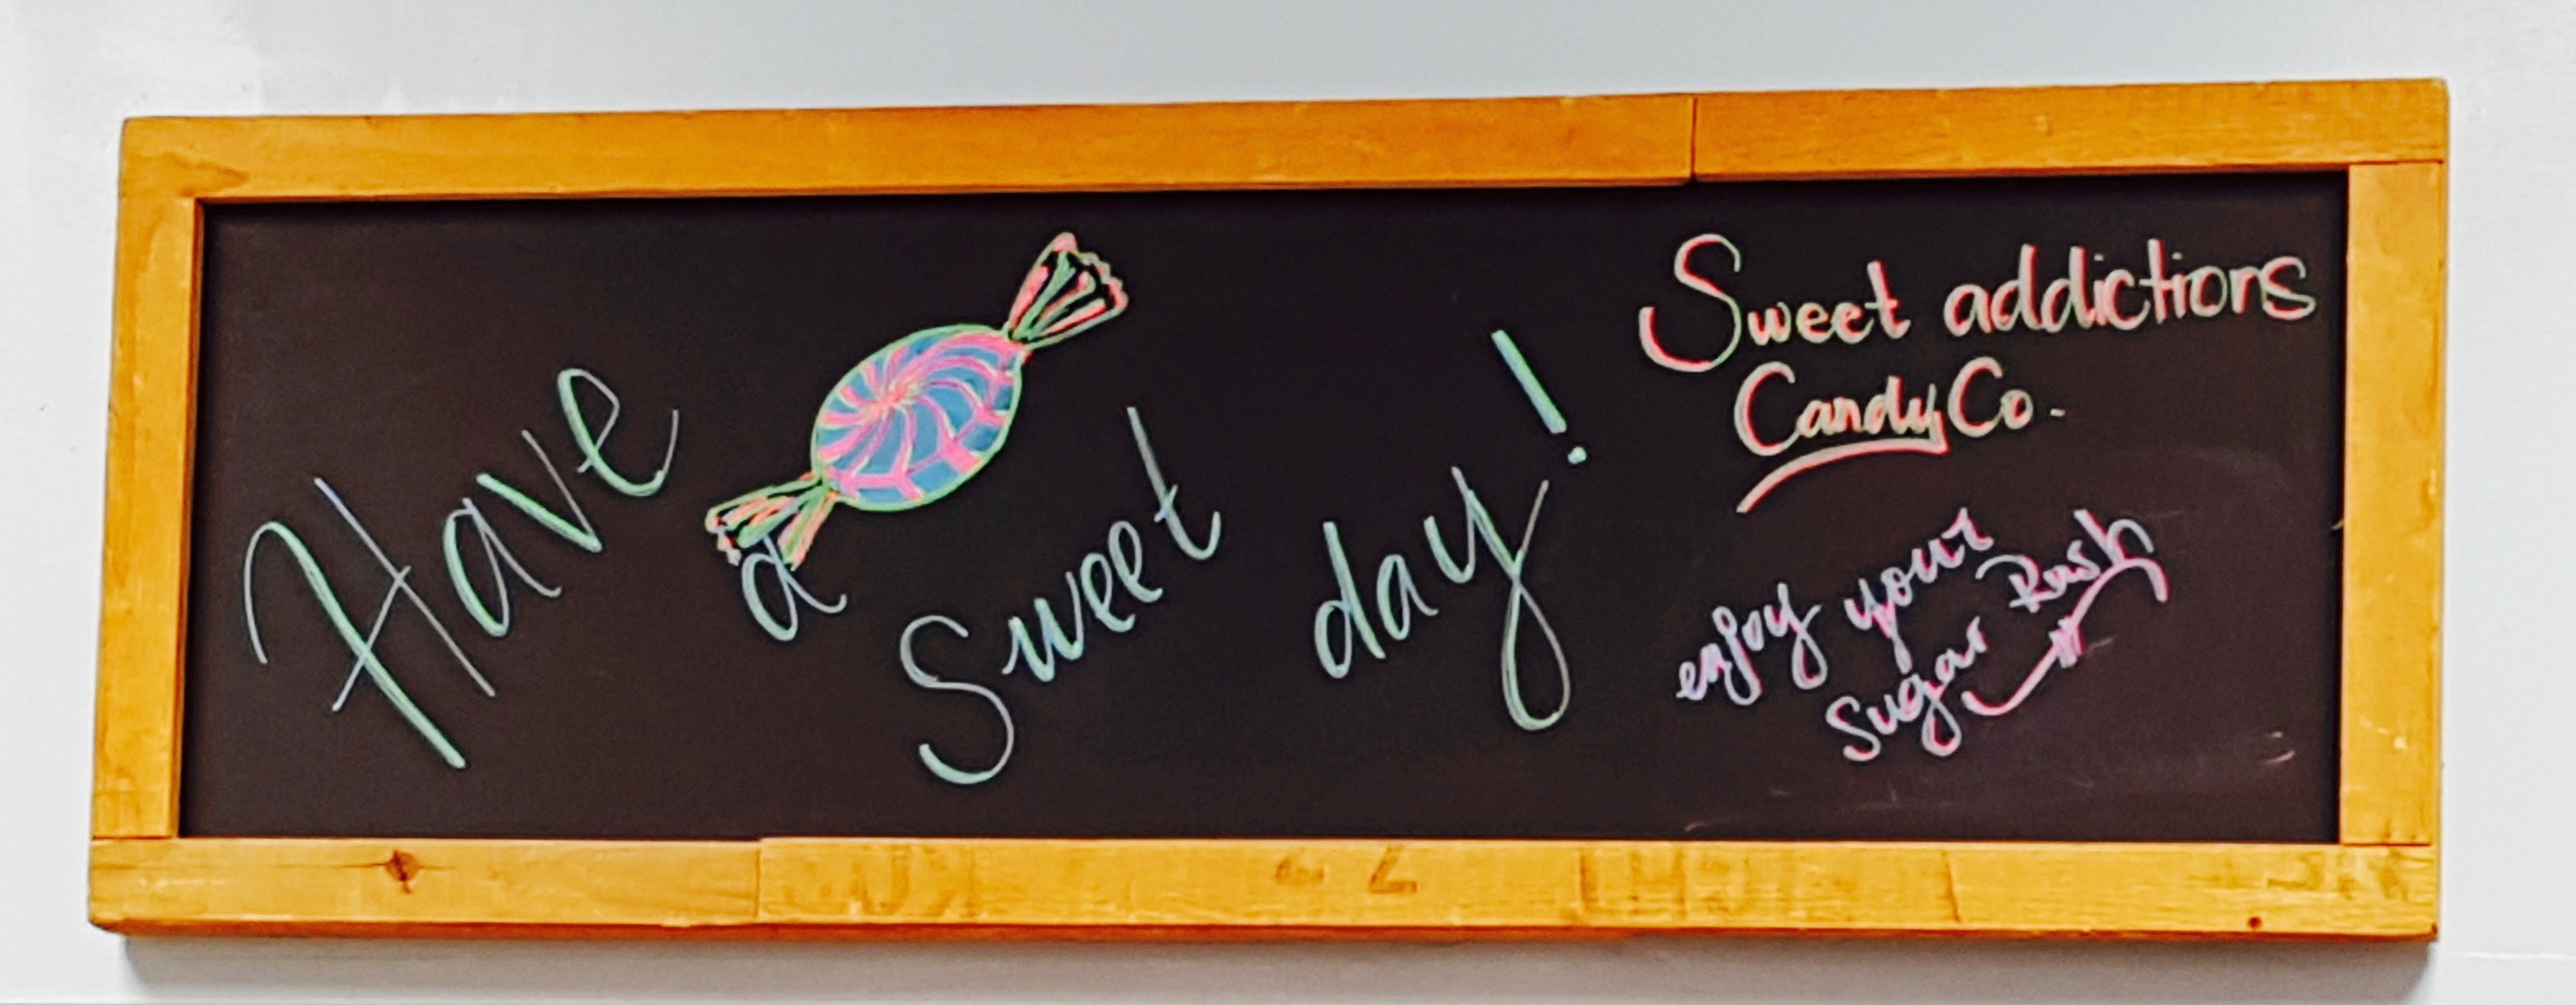 Have a Sweet day!
Sweet addictions
Candy Co.
enjoy your
Sugar Rush